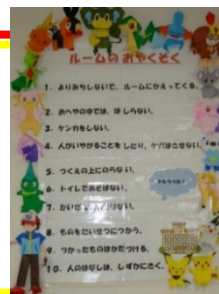 ルームの おやくそく
1. よりみちしないで、ルームにかえってくる。
2. おへやの中では、はしらない。
3. ケンカをしない。
4. 人がいやがることをしたり、ケガはさせない。
5. つくえの上にのらない。
6. トイレであそばない。
7.
8. ものをたいせつにつかう。
9. つかったものはかたづける。
10. 人のはなしは、しずかにきく。